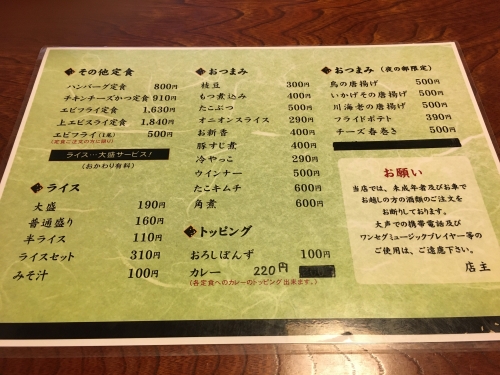 その他定食
ハンバーグ定食 800円
チキンチーズかつ定食 910円
エビフライ定食 1,630円
上エビスライ定食 1,840円
エビフライ(1尾) 500円
(定食ご注文の方に限り)
ライス…大盛サービス!
(おかわり有料)
ライス
大盛 190円
普通盛り 160円
半ライス 110円
ライスセット 310円
みそ汁 100円
おつまみ
枝豆 300円
もつ煮込み 400円
たこぶつ 500円
オニオンスライス 290円
お新香 400円
豚すじ煮 400円
冷やっこ 290円
ウインナー 500円
たこキムチ 600円
角煮 600円
トッピング
おろしぽんず 100円
カレー 220円
(各定食へのカレーのトッピング出来ます。)
おつまみ (夜の部限定)
鳥の唐揚げ 500円
いかげその唐揚げ 500円
川海老の唐揚げ 500円
フライドポテト 390円
チーズ春巻き 500円
お願い
当店では、未成年者及びお車で
お越しの方の酒類のご注文を
お断りしております。
大声での携帯電話及び
ワンセグミュージックプレイヤー等の
ご使用は、ご遠慮下さい。
店主